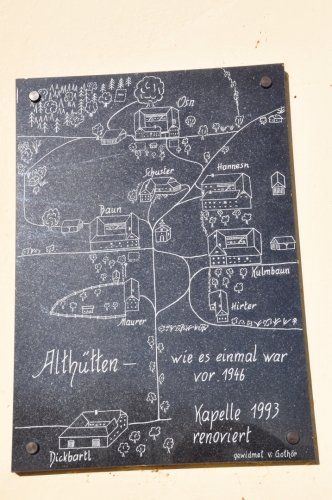 Osn
Schuster
Hannesn
Baun
Kulmbaun
Maurer
Hirter
Althütten –
wie es einmal war
vor 1946
Kapelle 1993
renoviert
Dickbartl
gewidmet v. Gothör